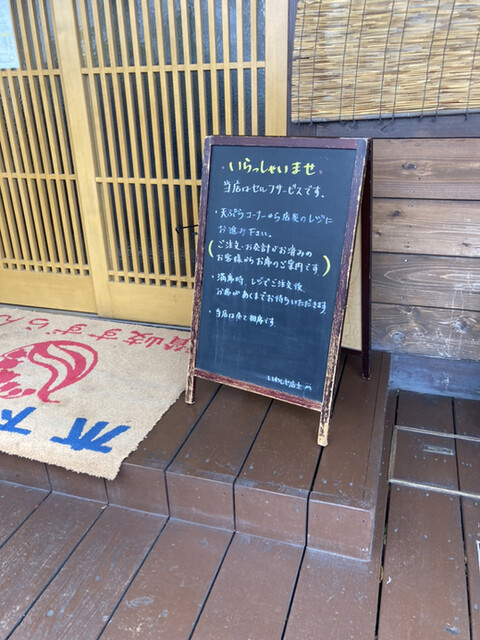 いらっしゃいませ
当店はセルフサービスです。
・天ぷらコーナーから店奥のレジに
お進み下さい。
(ご注文・お会計がお済みの
お客様からお席のご案内です)
・満席時、レジでご注文後、
お席があくまでお待ちいただきます。
・当店は全て相席です。